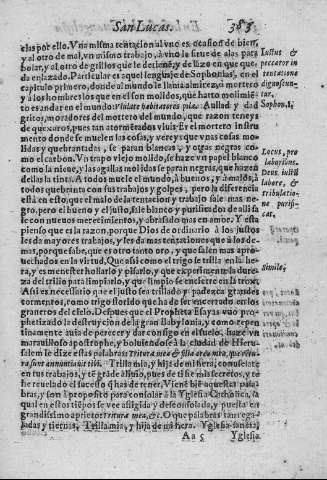 San Lucas. 383
elas por ello. Vna misma tentacion al vno es ocasion de bien,
y al otro de mal, vn mismo trabajo, à vno le sirue de alas para
bolar, y al otro de grillos que le detienē, y de lazo en que que
da enlazado. Particular es aquel lenguaje de Sophonias, en el
capitulo primero, donde al mundo le llama almirez, ò mortero
y à los hombres los que en el son molidos, que hatto molimiē-
to es andar en el mundo. Vlulate habitatores pilæ. Aullad y dad
gritos, moradores del mortero del mundo, que razon teneys
de quexaros, pues tan atormentados viuis. En el mortero instru
mento donde se muelen las cosas, vereys que vnas cosas mo-
lidas y quebrantadas, se paran blancas, y otras negras co-
mo el carbon. Vn trapo viejo molido, se haze vn papel blanco
como la nieue, y las agallas molidas se paran negras, que hazen
dellas la tinta. A todos muele el mundo, à buenos, y à malos, à
todos quebranta con sus trabajos y golpes, pero la diferencia
està en esto, que el malo de la tentacion y trabajo sale mas ne-
gro, pero el bueno y el justo, sale blanco y purificado de alli
con nueuos merecimientos, y abrasado mas en amor. Y esta
pienso que es la razon, porque Dios de ordinario à los justos
les da mayores trabajos, y les da mas tentaciones que à los de-
mas, porque sabe, que es otro tanto oro, y que salen mas apro-
uechados en la virtud. Que assi como el trigo se trilla en la he-
ra, y es menester hollarlo y pisarlo, y que experimente la dure-
za del trillo para limpiarlo, y que limpio se encierre en la troxe
Assi es necessario que el justo sea trillado y padezca grandes
tormentos, como trigo florido que ha de ser encerrado en los
graneros del cielo. Despues que el Propheta Esayas vuo pro-
phetizado la destruycion de la gran Babylonia, y como repen-
tinamente auia de perecer y dar consigo en el suelo, haze vn
marauilloso apostrophe, y boluiendose à la ciudad de Hieru-
salem le dize estas palabras: Tritura mea & filia areæ meæ, quæ
Trilla mia, y hija de mi hera, consuelate
en tus trabajos,
te he reuelado el sucesso que has de tener. Viene biē aquestas pala-
bras, y son à proposito para consolar à la Yglesia Catholica, la
qual en estos tiēpos se vee afligida y desconsolada, y puesta en
grandissimo aprieto: Tritura mea, &c. O que palabras tan rega-
ladas y tiernas, Trilla mia, y hija de mi hera. Yglesia
Aa 5 Yglesia
Iustus &
peccator in
tentatione
dignoscun-
tur.
Sopho. 1.
Locus, pro
laboribus.
Deus iustū
labore, &
tribulatio-
ne purifi-
cat.
Simile,